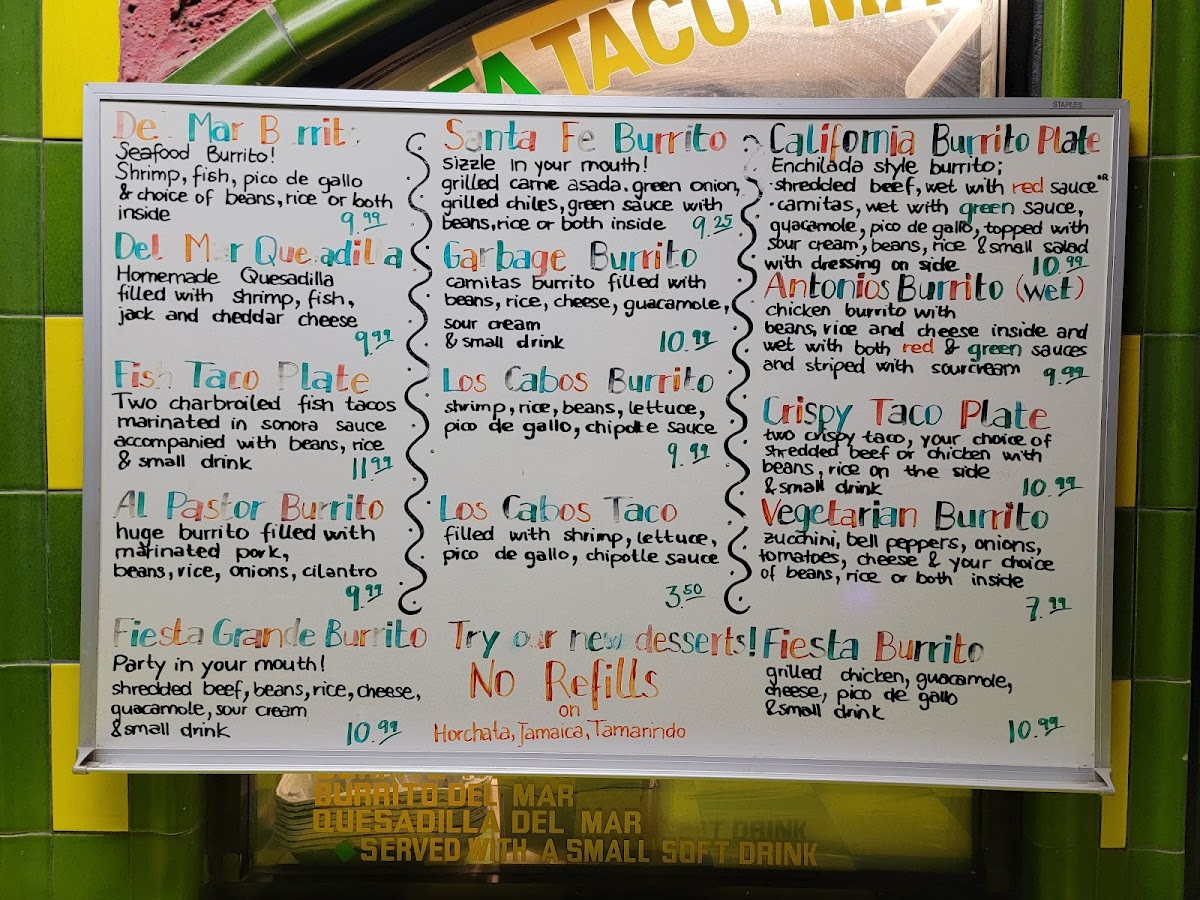 TACO
STAPLES
De Mar B rrit
Seafood Burrito!
Shrimp, fish, pico de gallo
& choice of beans, rice or both
inside 9.99
Del M r Que adilla
Homemade Quesadilla
filled with shrimp, fish,
jack and cheddar cheese
9.99
Fish Taco Plate
Two charbroiled fish tacos
marinated in sonora sauce
accompanied with beans, rice
& small drink 11.99
Al Pastor Burrito
huge burrito filled with
marinated pork,
beans, rice, onions, cilantro
9.99
Fiesta Grande Burrito
Party in your mouth!
shredded beef, beans, rice, cheese,
guacamole, sour cream
& small drink 10.99
Santa Fe Burrito
Sizzle in your mouth!
grilled carne asada. green onion,
grilled chiles, green sauce with
beans, rice or both inside 9.25
Garbage Burrito
carnitas burrito filled with
beans, rice, cheese, guacamole,
sour cream
& small drink 10.99
Los Cabos Burrito
shrimp, rice, beans, lettuce,
pico de gallo, chipotle sauce
9.99
Los Cabos Taco
filled with shrimp, lettuce,
pico de gallo, chipotle sauce
3.50
Try our new desserts!
No Refills
on
Horchata, Jamaica, Tamarindo
California Burrito Plate
Enchilada style burrito;
·shredded beef, wet with red sauce *OR
·carnitas, wet with green sauce,
guacamole, pico de gallo, topped with
sour cream, beans, rice & small salad
with dressing on side 10.99
Antonios Burrito (wet)
chicken burrito with
beans, rice and cheese inside and
wet with both red & green sauces
and striped with sourcream 9.99
Crispy Taco Plate
two crispy taco, your choice of
shredded beef or chicken with
beans, rice on the side
& small drink 10.99
Vegetarian Burrito
zucchini, bell peppers, onions,
tomatoes, cheese & your choice
of beans, rice or both inside
7.99
Fiesta Burrito
grilled chicken, guacamole,
cheese, pico de gallo
& small drink
10.99
BURRITO DEL MAR
QUESADILLA DEL MAR
SERVED WITH A SMALL SOFT DRINK